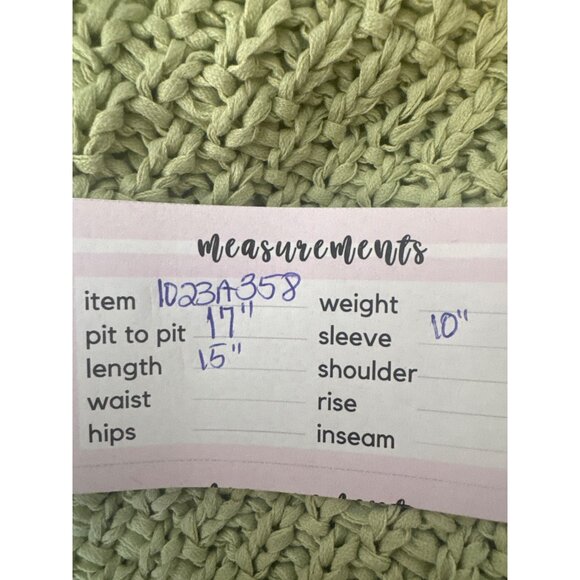 measurements
item 1023A358
pit to pit 17"
length 15"
waist
hips
weight
sleeve 10"
shoulder
rise
inseam